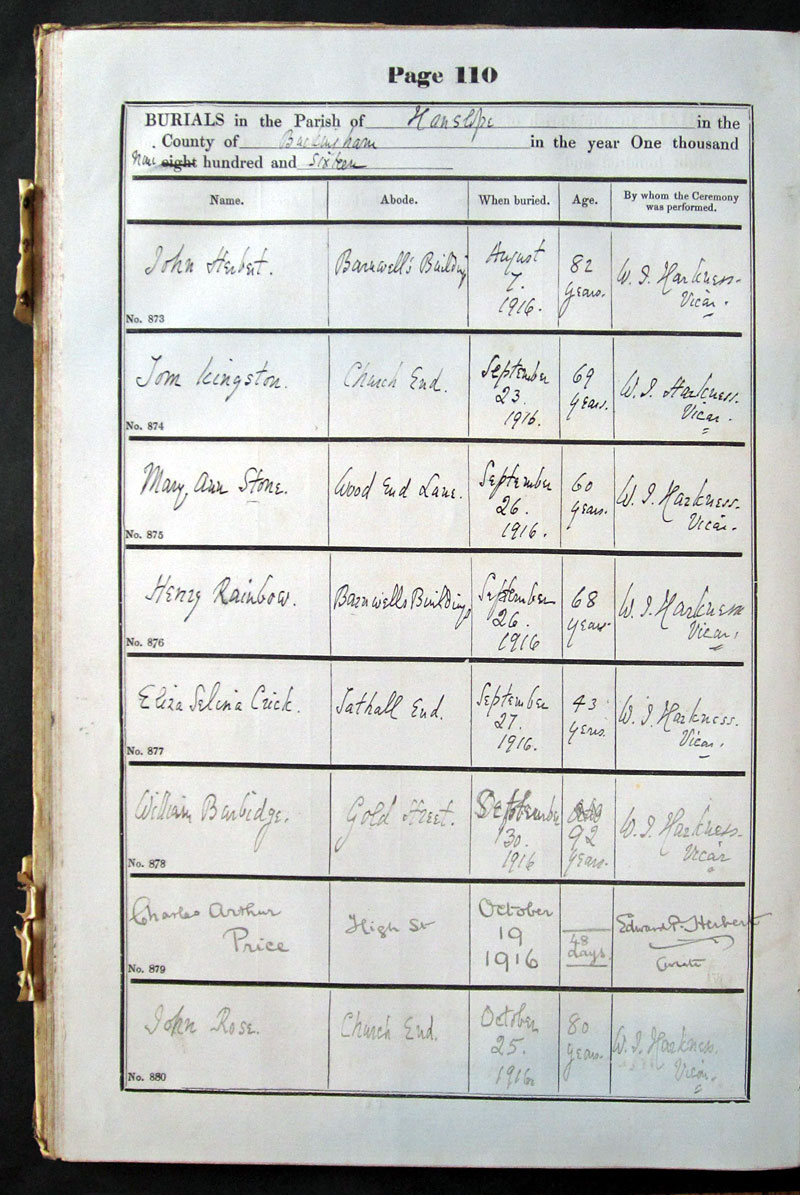 Page 110
BURIALS in the Parish of Hanslope in the
County of Buckingham in the year One thousand
Nine eight hundred and Sixteen
Name. Abode. When buried. Age. By whom the Ceremony was performed.
John Herbert. Barnwell's Building August 7. 1916. 82 years. W. J. Harkness- Vicar.
No. 873
Tom Kingston. Church End. September 23. 1916. 69 years. W. J. Harkness. Vicar.
No. 874
Mary Ann Stone. Wood End Lane. September 26. 1916. 60 years. W. J. Harkness. Vicar.
No. 875
Henry Rainbow. Barnwells Buildings September 26. 1916 68 years. W. J. Harkness Vicar.
No. 876
Eliza Selina Crick. Tathall End. September 27. 1916. 43 years. W. J. Harkness. Vicar.
No. 877
William Barbidge. Gold Street. September 30. 1916 92 years. W. J. Harkness- Vicar
No. 878
Charles Arthur Price High St October 19 1916 48 Days. Edward P. Herbert Curate
No. 879
John Rose. Church End. October 25. 1916. 80 years. W. J. Harkness. Vicar.
No. 880